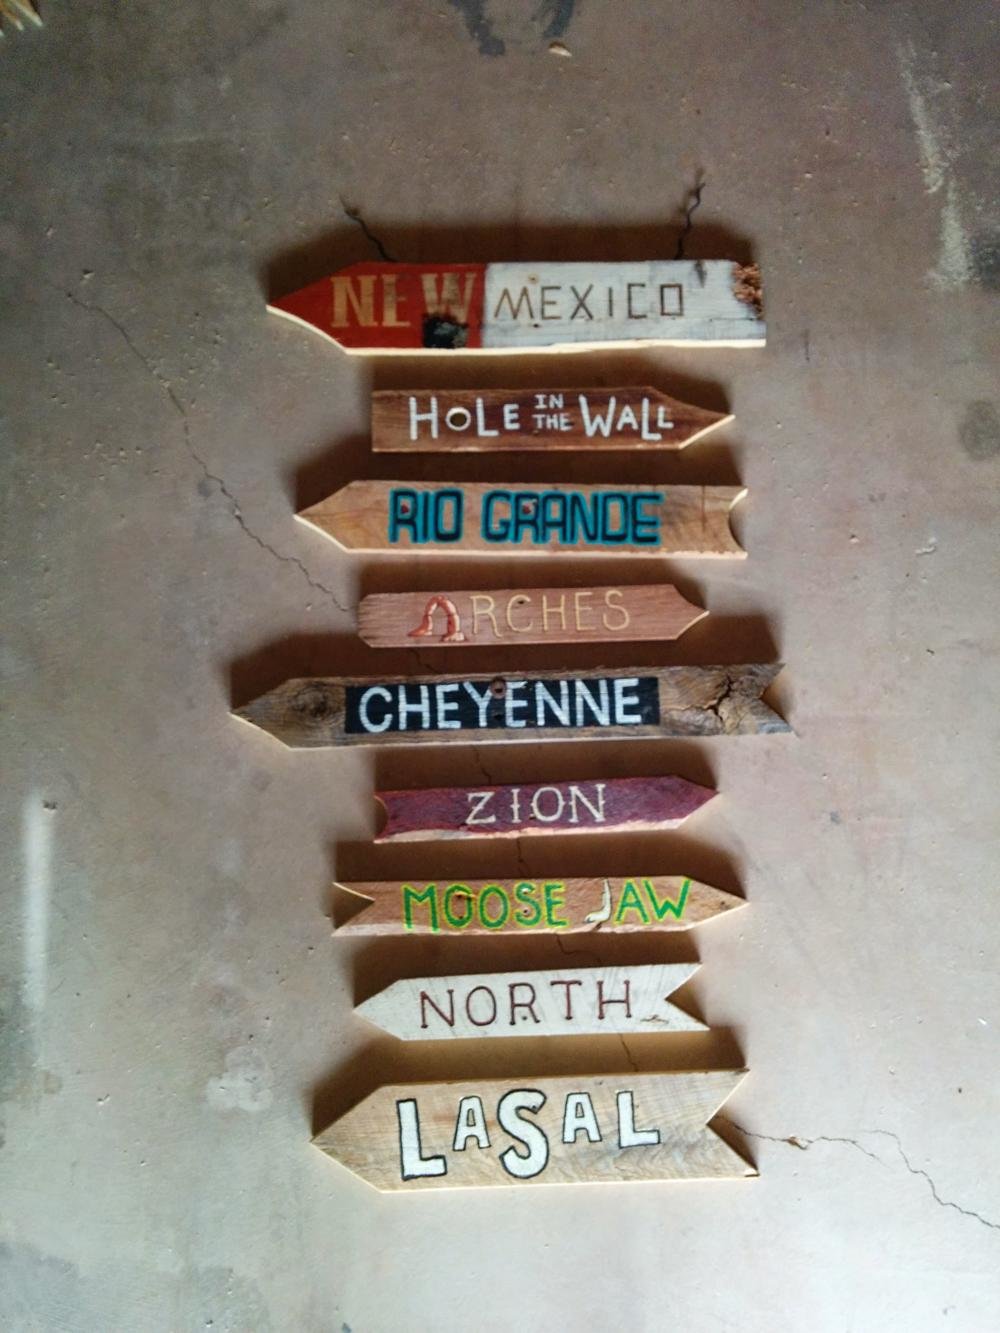 NEW MEXICO
HOLE IN THE WALL
RIO GRANDE
ARCHES
CHEYENNE
ZION
MOOSE JAW
NORTH
LASAL